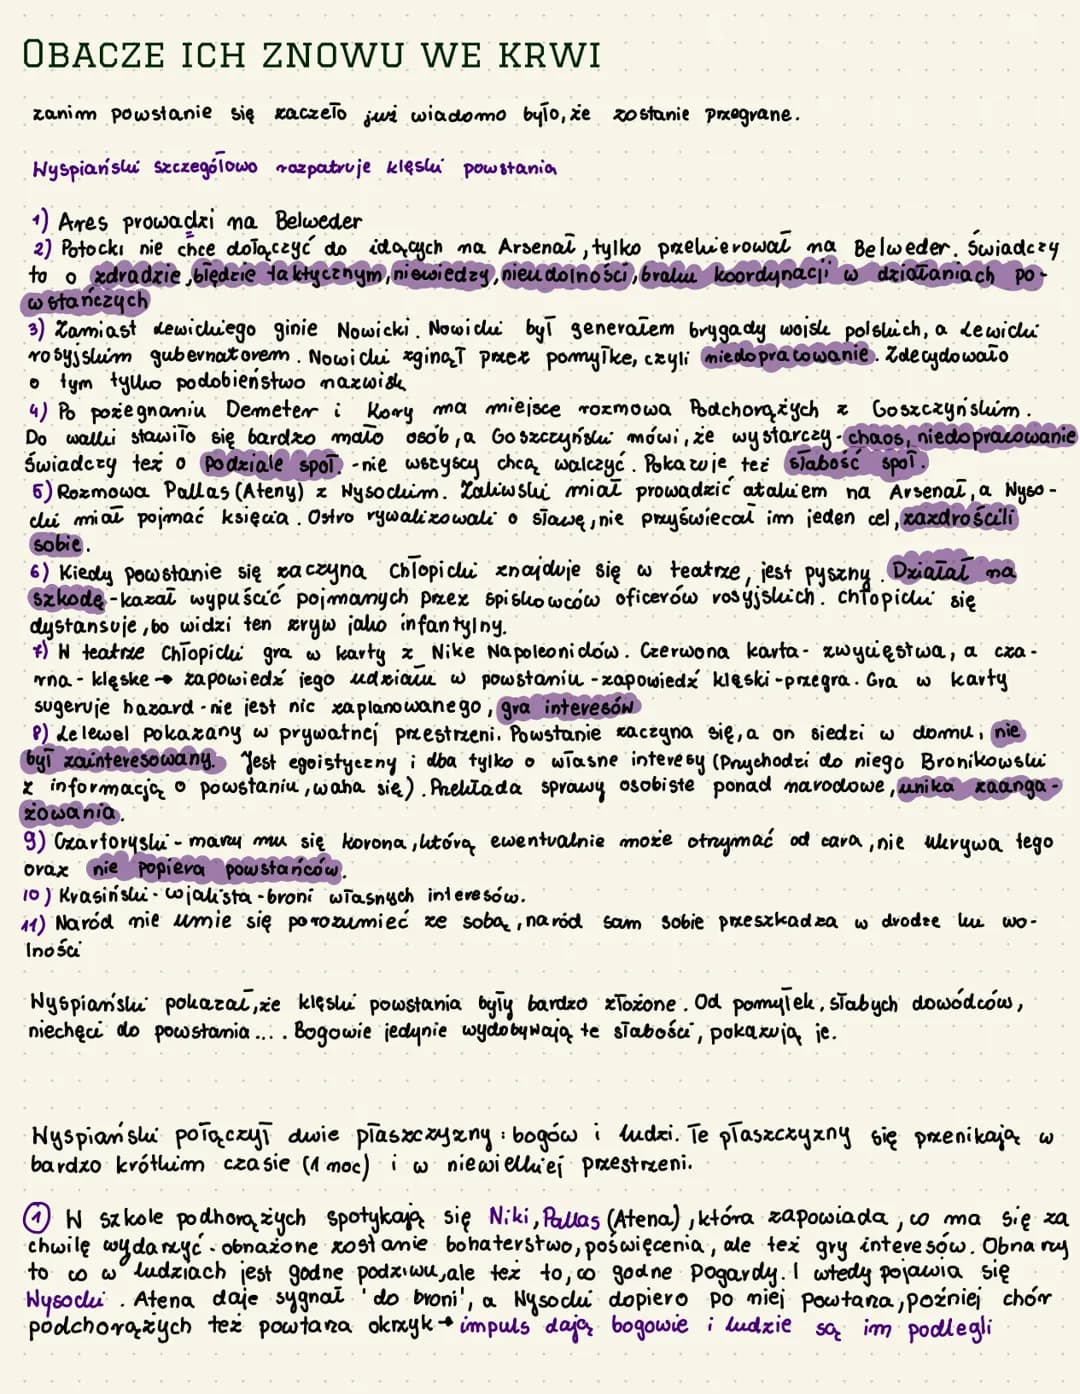 OBACZE ICH ZNOWU WE KRWI
zanim powstanie się zaczeło już wiadomo było, że zostanie przegrane.
Wyspiański szczegółowo rozpatruje klęski powstania
1) Ares prowadzi na Belweder
2) Potocki nie chce dołączyć do idących na Arsenał, tylko przekierował na Belweder. Świadczy
to o zdradzie, błędzie taktycznym, niewiedzy, nieudolności, braku koordynacji w działaniach po-
wstańczych
3) Zamiast Lewickiego ginie Nowicki. Nowicki był generałem brygady wojsk polskich, a Lewicki
rosyjskim gubernatorem. Nowicki zginął przez pomyłke, czyli niedopracowanie. Zdecydowało
o tym tylko podobieństwo nazwisk
4) Po pożegnaniu Demeter i Kory ma miejsce rozmowa Podchorążych z Goszczyńskim.
Do walki stawiło się bardzo mało osób, a Goszczyński mówi, że wystarczy - chaos, niedopracowanie
Świadczy też o podziale społ. - nie wszyscy chcą walczyć. Pokazuje też słabość społ.
5) Rozmowa Pallas (Ateny) z Wysockim. Zaliwski miał prowadzić atakiem na Arsenał, a Wyso-
cki miał pojmać księcia. Ostro rywalizowali o sławę, nie przyświecał im jeden cel, zazdrościli
sobie.
6) Kiedy powstanie się zaczyna Chłopicki znajduje się w teatrze, jest pyszny. Działał na
szkodę - kazał wypuścić pojmanych przez spiskowców oficerów rosyjskich. Chłopicki się
dystansuje, bo widzi ten zryw jako infantylny.
7) W teatrze Chłopicki gra w karty z Nike Napoleonidów. Czerwona karta - zwycięstwa, a cza-
rna - klęske → zapowiedź jego udziału w powstaniu - zapowiedź klęski - przegra. Gra w karty
sugeruje hazard - nie jest nic zaplanowanego, gra interesów
8) Lelewel pokazany w prywatnej przestrzeni. Powstanie zaczyna się, a on siedzi w domu, nie
był zainteresowany. Jest egoistyczny i dba tylko o własne interesy (Przychodzi do niego Bronikowski
z informacją o powstaniu, waha się). Przekłada sprawy osobiste ponad narodowe, unika zaanga-
żowania.
9) Czartoryski - marzy mu się korona, którą ewentualnie może otrzymać od cara, nie ukrywa tego
oraz nie popiera powstańców.
10) Krasiński - wjalista - broni własnych interesów.
11) Naród nie umie się porozumieć ze sobą, naród sam sobie przeszkadza w drodze ku wo-
lności
Wyspiański pokazał, że klęski powstania były bardzo złożone. Od pomyłek, słabych dowódców,
niechęci do powstania.... Bogowie jedynie wydobywają te słabości, pokazują je.
Wyspiański połączył dwie płaszczyzny: bogów i ludzi. Te płaszczyzny się przenikają w
bardzo krótkim czasie (1 noc) i w niewielkiej przestrzeni.
① W szkole podhorążych spotykają się Niki, Pallas (Atena), która zapowiada, co ma się za
chwilę wydarzyć - obnażone zostanie bohaterstwo, poświęcenia, ale też gry interesów. Obnarzy
to co w ludziach jest godne podziwu, ale też to, co godne pogardy. I wtedy pojawia się
Wysocki. Atena daje sygnał 'do broni', a Wysocki dopiero po niej powtarza, poźniej chór
podchorążych też powtarza okrzyk → impuls dają bogowie i ludzie są im podlegli